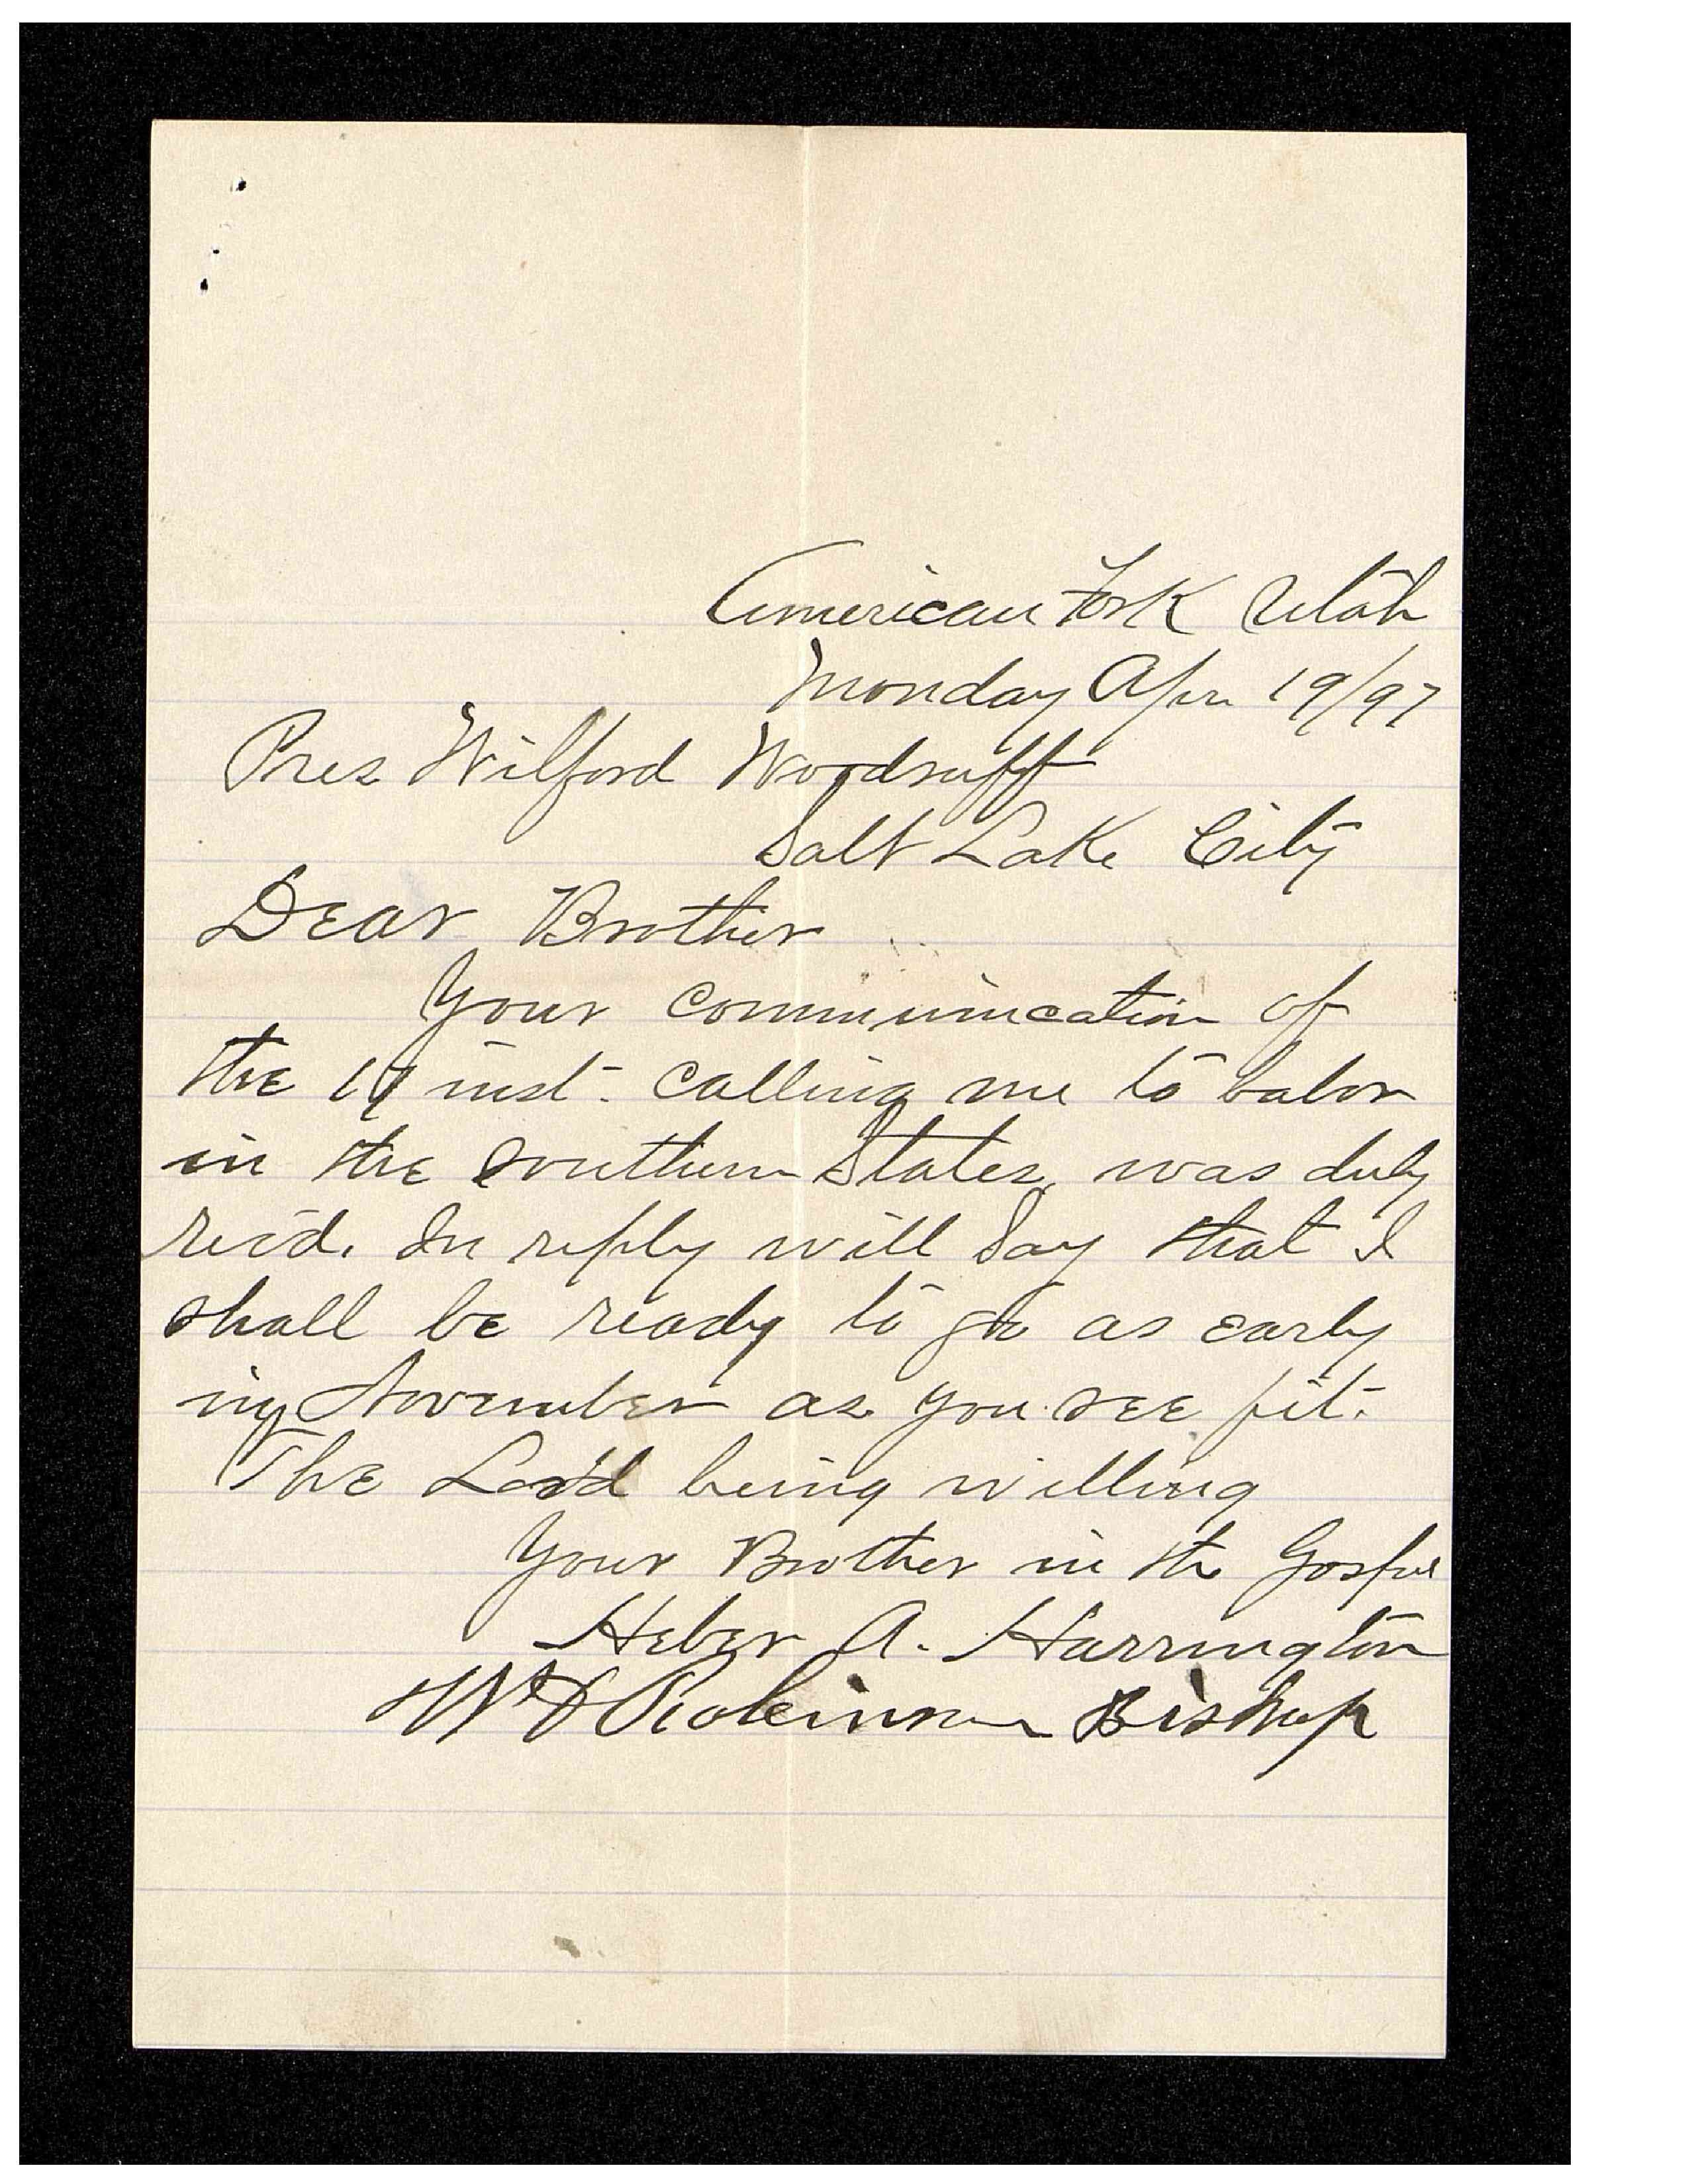 American Fork Utah
Monday Apr. 19/97
Pres Wilford Woodruff
Salt Lake City
Dear Brother
Your communication of
the inst. calling me to labor
in the southern States, was duly
recd. In reply will say that I
shall be ready to go as early
in November as you see fit.
The Lord being willing
Your Brother in the Gospel
Heber A. Harrington
Robinson Bishop